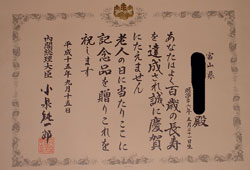 富山県
殿
あなたはよく百歳の長寿
を達成され誠に慶賀
にたえません
老人の日に当たりここに
記念品を贈りこれを
祝します
平成十五年九月十五日
内閣総理大臣 小泉純一郎